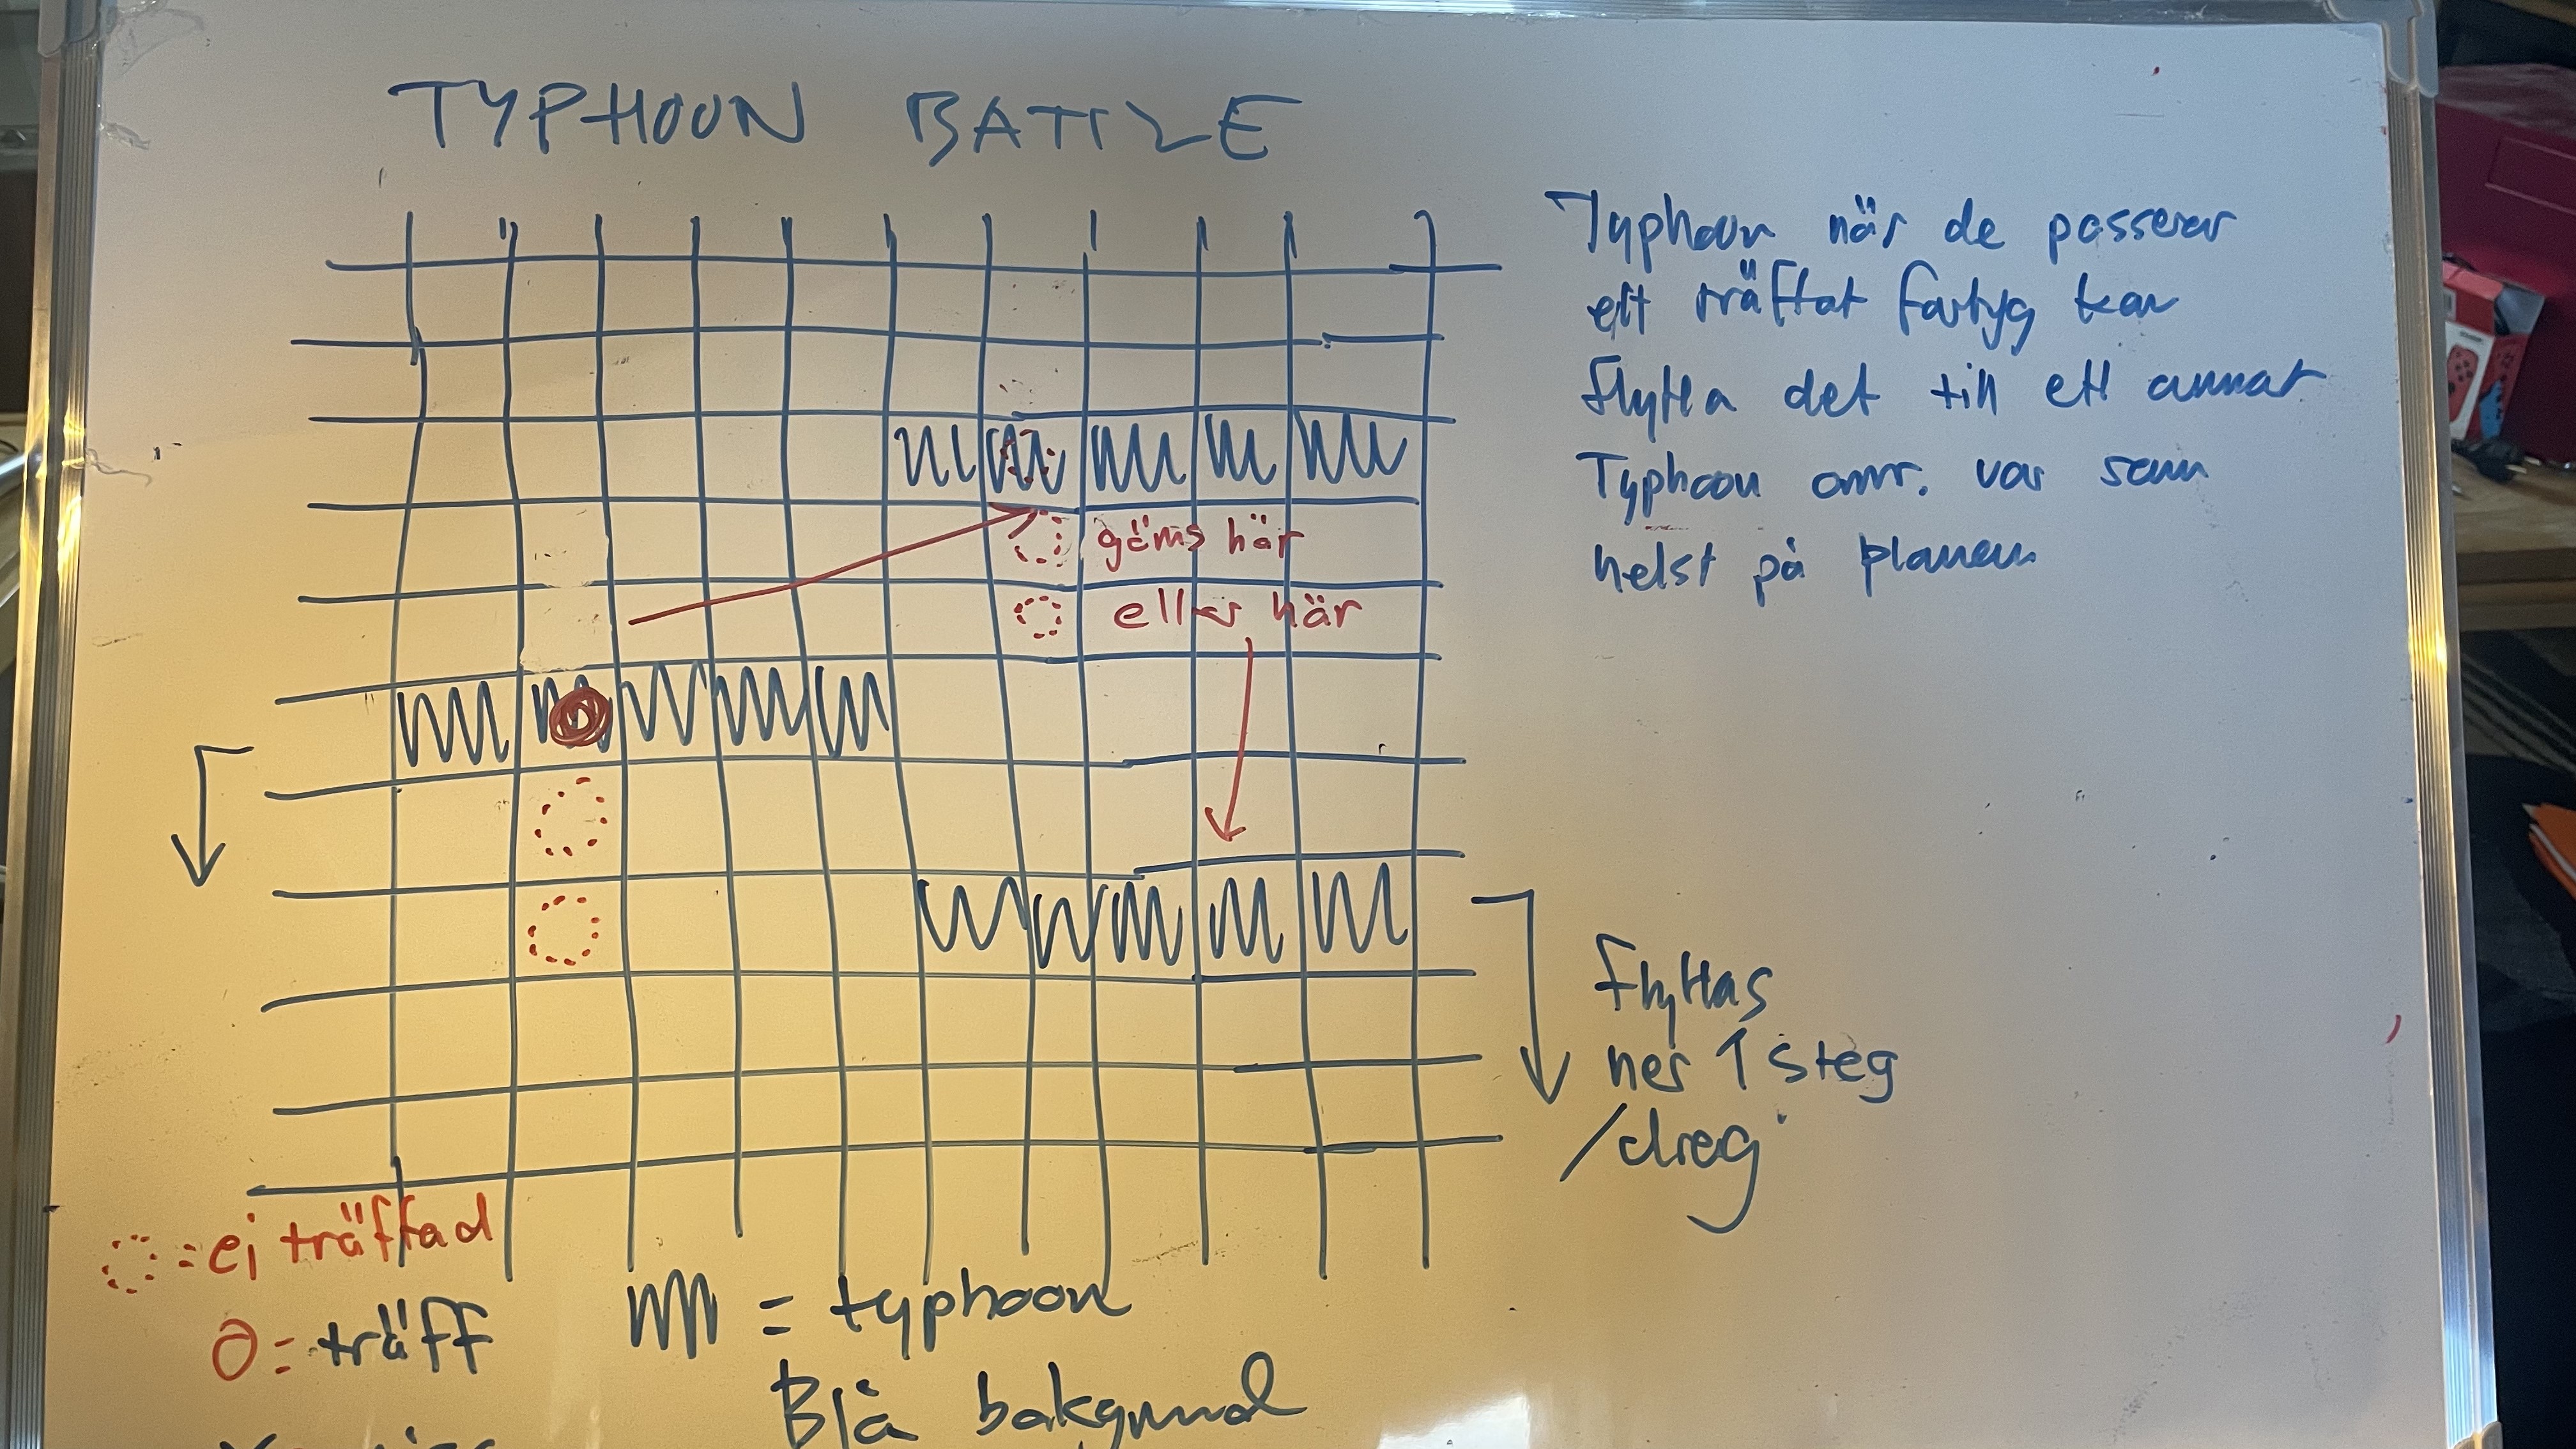 TYPHOON BATTLE
Typhoon när de passerar
ett träffat fartyg kan
flytta det till ett annat
Typhoon omr. var som
helst på planen
göms här
eller här
flyttas
ner 1 steg
/drag
= ej träffad
= träff
= typhoon
Blå bakgrund